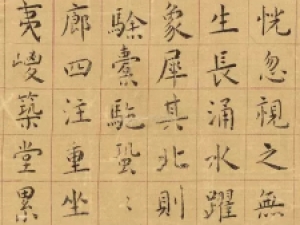 恍忽視之無
生長涌水躍
象犀其北則
駼橐駞蛩〻
廊四注重坐
夷嵕築堂累